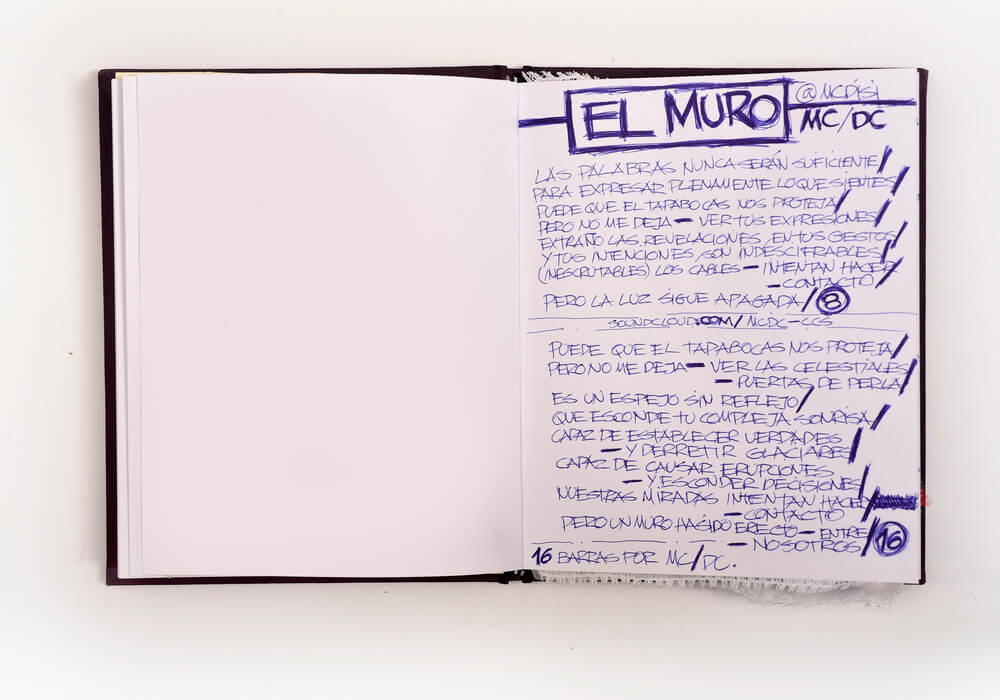 EL MURO
@MCDISI
MC/DC
LAS PALABRAS NUNCA SERÁN SUFICIENTE/
PARA EXPRESAR PLENAMENTE LO QUE SIENTES/
PUEDE QUE EL TAPABOCAS NOS PROTEJA/
PERO NO ME DEJA — VER TUS EXPRESIONES/
EXTRAÑO LAS REVELACIONES EN TUS GESTOS/
Y TUS INTENCIONES SON INDESCIFRABLES/
(INESCRUTABLES) LOS CABLES — INTENTAN HACER
— CONTACTO/
PERO LA LUZ SIGUE APAGADA/ 8
SOUNDCLOUD.COM/MCDC-CCS
PUEDE QUE EL TAPABOCAS NOS PROTEJA/
PERO NO ME DEJA — VER LAS CELESTIALES
— PUERTAS DE PERLA/
ES UN ESPEJO SIN REFLEJO/
QUE ESCONDE TU COMPLEJA SONRISA/
CAPAZ DE ESTABLECER VERDADES
— Y DERRETIR GLACIARES/
CAPAZ DE CAUSAR ERUPCIONES
— Y ESCONDER DECISIONES/
NUESTRAS MIRADAS INTENTAN HACER
— CONTACTO
PERO UN MURO HA SIDO ERECTO — ENTRE
— NOSOTROS/ 16
16 BARRAS POR MC/DC.